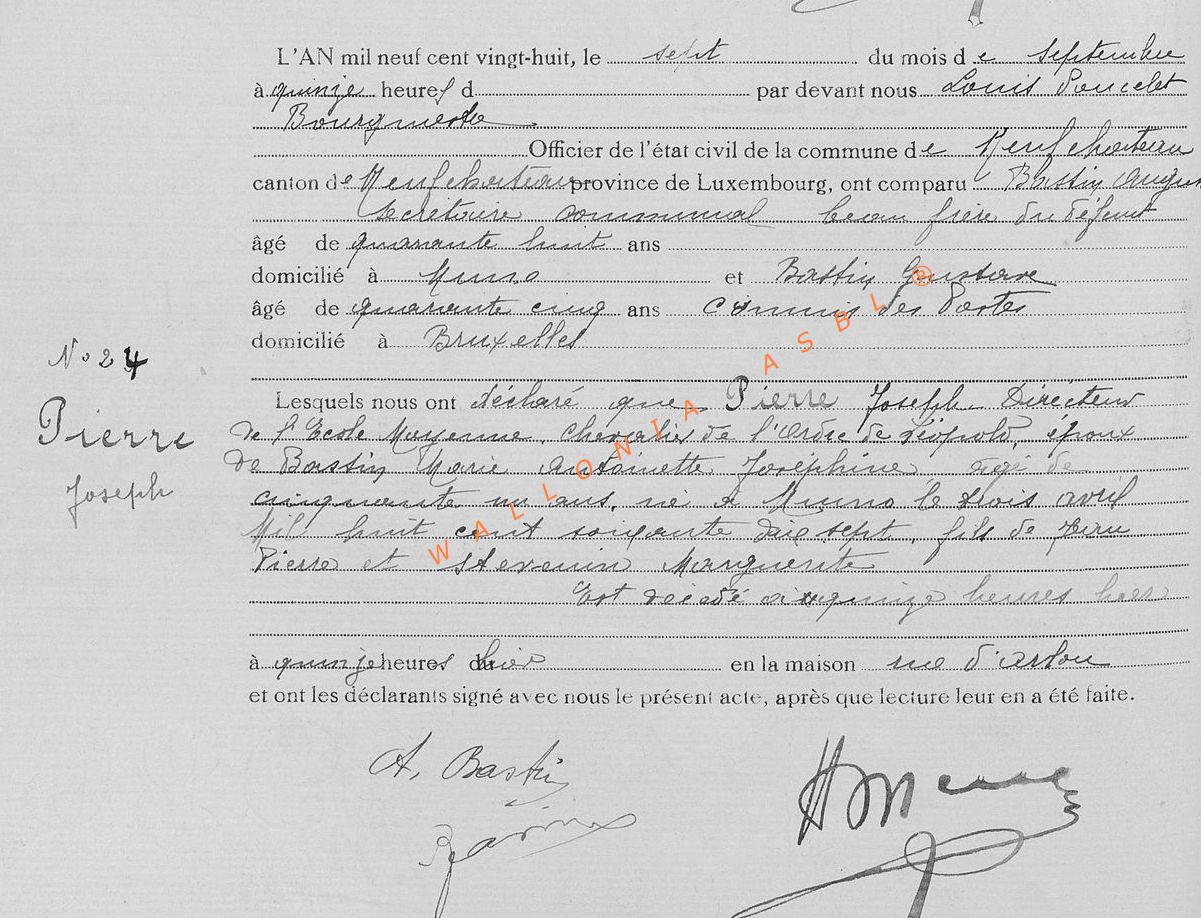 L'AN mil neuf cent vingt-huit, le sept du mois de septembre
à quinze heures d par devant nous Louis Poncelet
Bourgmestre
Officier de l'état civil de la commune de Neufchateau
canton de Neufchateau province de Luxembourg, ont comparu Bastin August
secrétaire communal beau frère du défunt
âgé de quarante huit ans
domicilié à Muno et Bastin Gustave
âgé de quarante cinq ans Commis des Postes
domicilié à Bruxelles
No 24
Lesquels nous ont déclaré que Pierre Joseph Directeur
Pierre
de l'Ecole Moyenne, Chevalier de l'Ordre de Léopold, époux
de Bastin Marie Antoinette Joséphine agé de
Joseph
cinquante un ans, né à Muno le trois avril
Mil huit cent soixante dix sept, fils de Jean
Pierre et Stevenin Marguerite
Est décédé à quinze heures hier
à quinze heures du hier en la maison rue d'Arlon
et ont les déclarants signé avec nous le présent acte, après que lecture leur en a été faite.
A. Bastin
WALLONIA ASBL ®